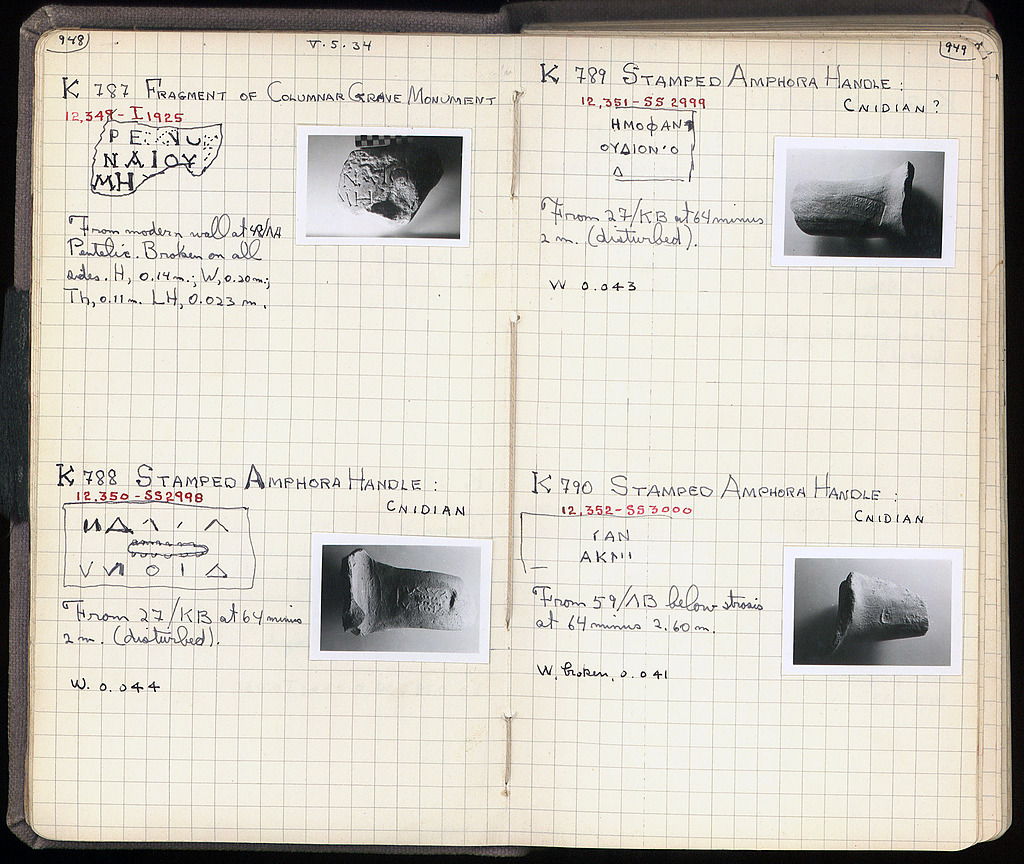 948
V.5.34
K 787 FRAGMENT OF COLUMNAR GRAVE MONUMENT
12,349-I 1925
ΝΑΙΟΥ
ΜΗ
From modern wall at 48/ΛΑ
Pentelic. Broken on all
sides. H, 0.14 m.; W, 0.20 m;
Th, 0.11 m. LH, 0.023 m.
K 788 STAMPED AMPHORA HANDLE :
12,350 - SS2998
CNIDIAN
From 27/KB at 64 minus
2 m. (disturbed).
W. 0.044
949
K 789 STAMPED AMPHORA HANDLE :
12,351 - SS 2999
CNIDIAN ?
ΗΜΟΦΑΝ
ΟΥΔΙΟΝ'Ο
Δ
From 27/KB at 64 minus
2 m. (disturbed).
W 0.043
K 790 STAMPED AMPHORA HANDLE :
12,352 - SS3000
CNIDIAN
ΑΝ
ΑΚ
From 59/ΛB below strosis
at 64 minus 2.60 m.
W, broken, 0.041